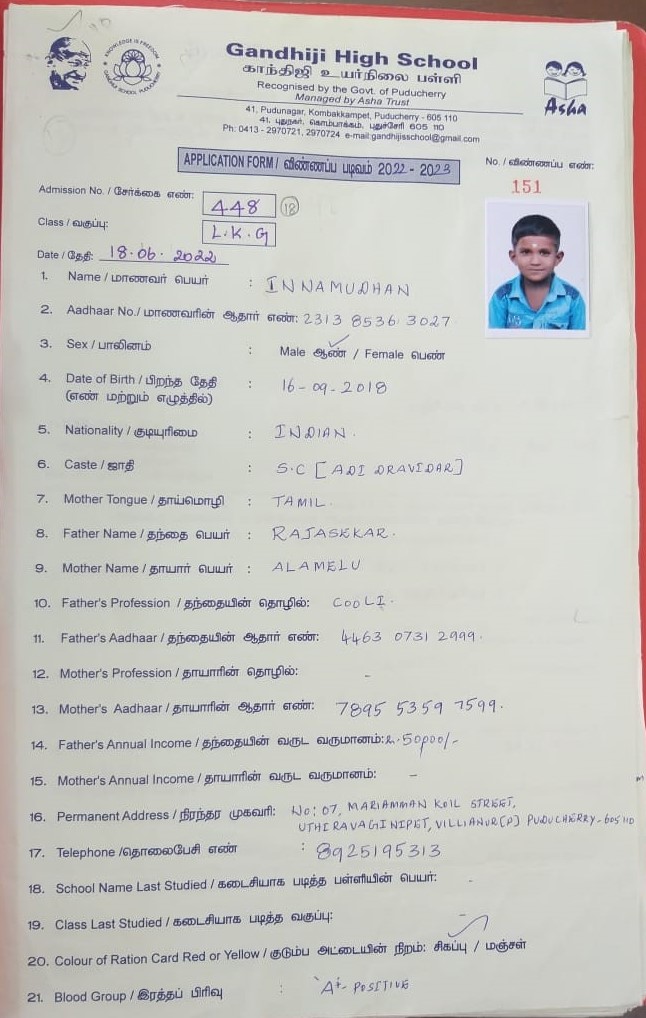 KNOWLEDGE IS FREEDOM
GANDHIJI SCHOOL PUDUCHERRY
Gandhiji High School
காந்திஜி உயர்நிலை பள்ளி
Recognised by the Govt. of Puducherry
Managed by Asha Trust
Asha
41, Pudunagar, Kombakkampet, Puducherry - 605 110
41, புதுநகர், கொம்பாக்கம், புதுச்சேரி 605 110
Ph: 0413 - 2970721, 2970724 e-mail:gandhijisschool@gmail.com
APPLICATION FORM / விண்ணப்ப படிவம் 2022 - 2023
No. / விண்ணப்ப எண்:
151
Admission No. / சேர்க்கை எண்: 448 18
Class / வகுப்பு: L.K.G
Date / தேதி: 18.06.2022
1. Name / மாணவர் பெயர் : INNAMUDHAN
2. Aadhaar No./ மாணவரின் ஆதார் எண்: 2313 8536 3027
3. Sex / பாலினம் : Male ஆண் / Female பெண்
4. Date of Birth / பிறந்த தேதி : 16-09-2018
(எண் மற்றும் எழுத்தில்)
5. Nationality / குடியுரிமை : INDIAN.
6. Caste / ஜாதி : S.C [ADI DRAVIDAR]
7. Mother Tongue / தாய்மொழி : TAMIL.
8. Father Name / தந்தை பெயர் : RAJASEKAR.
9. Mother Name / தாயார் பெயர் : ALAMELU
10. Father's Profession / தந்தையின் தொழில்: COOLI.
11. Father's Aadhaar / தந்தையின் ஆதார் எண்: 4463 0731 2999.
12. Mother's Profession / தாயாரின் தொழில்: -
13. Mother's Aadhaar / தாயாரின் ஆதார் எண்: 7895 5359 7599.
14. Father's Annual Income / தந்தையின் வருட வருமானம்: 50000/-
15. Mother's Annual Income / தாயாரின் வருட வருமானம்: -
16. Permanent Address / நிரந்தர முகவரி: No: 07, MARIAMMAN KOIL STREET,
UTHIRAVAGINIPET, VILLIANUR(P) PUDUCHERRY-605110
17. Telephone /தொலைபேசி எண் : 8925195313
18. School Name Last Studied / கடைசியாக படித்த பள்ளியின் பெயர்: -
19. Class Last Studied / கடைசியாக படித்த வகுப்பு: -
20. Colour of Ration Card Red or Yellow / குடும்ப அட்டையின் நிறம்: சிகப்பு / மஞ்சள்
21. Blood Group / இரத்தப் பிரிவு : 'A+ POSITIVE